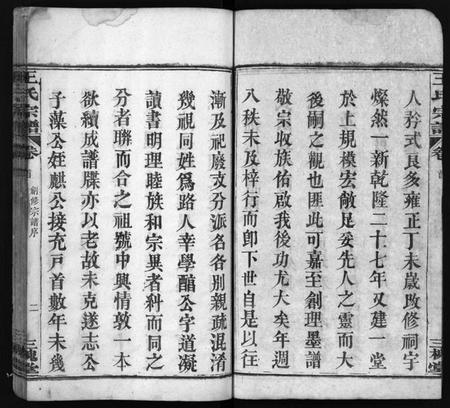 王氏宗譜
卷首
三槐堂
人矜式良多雍正丁未歲改修祠宇
燦然一新乾隆二十七年又建一堂
於上規模宏敞足妥先人之靈而大
後嗣之觀也匪此可嘉至創理墨譜
敬宗收族佑啟我後功尤大矣年週
八秩未及梓行而卽下世自是以往
漸及祀廢支分派名各別親疏混淆
幾視同姓爲路人幸學醋公字道凝
讀書明理睦族和宗異者科而同之
分者聯而合之祖號中興情敦一本
欲續成譜牒亦以老故未克遂志公
子藻公姪麒公接充戸首數年未幾
王氏宗譜
卷首
創修宗譜序
二
三槐堂